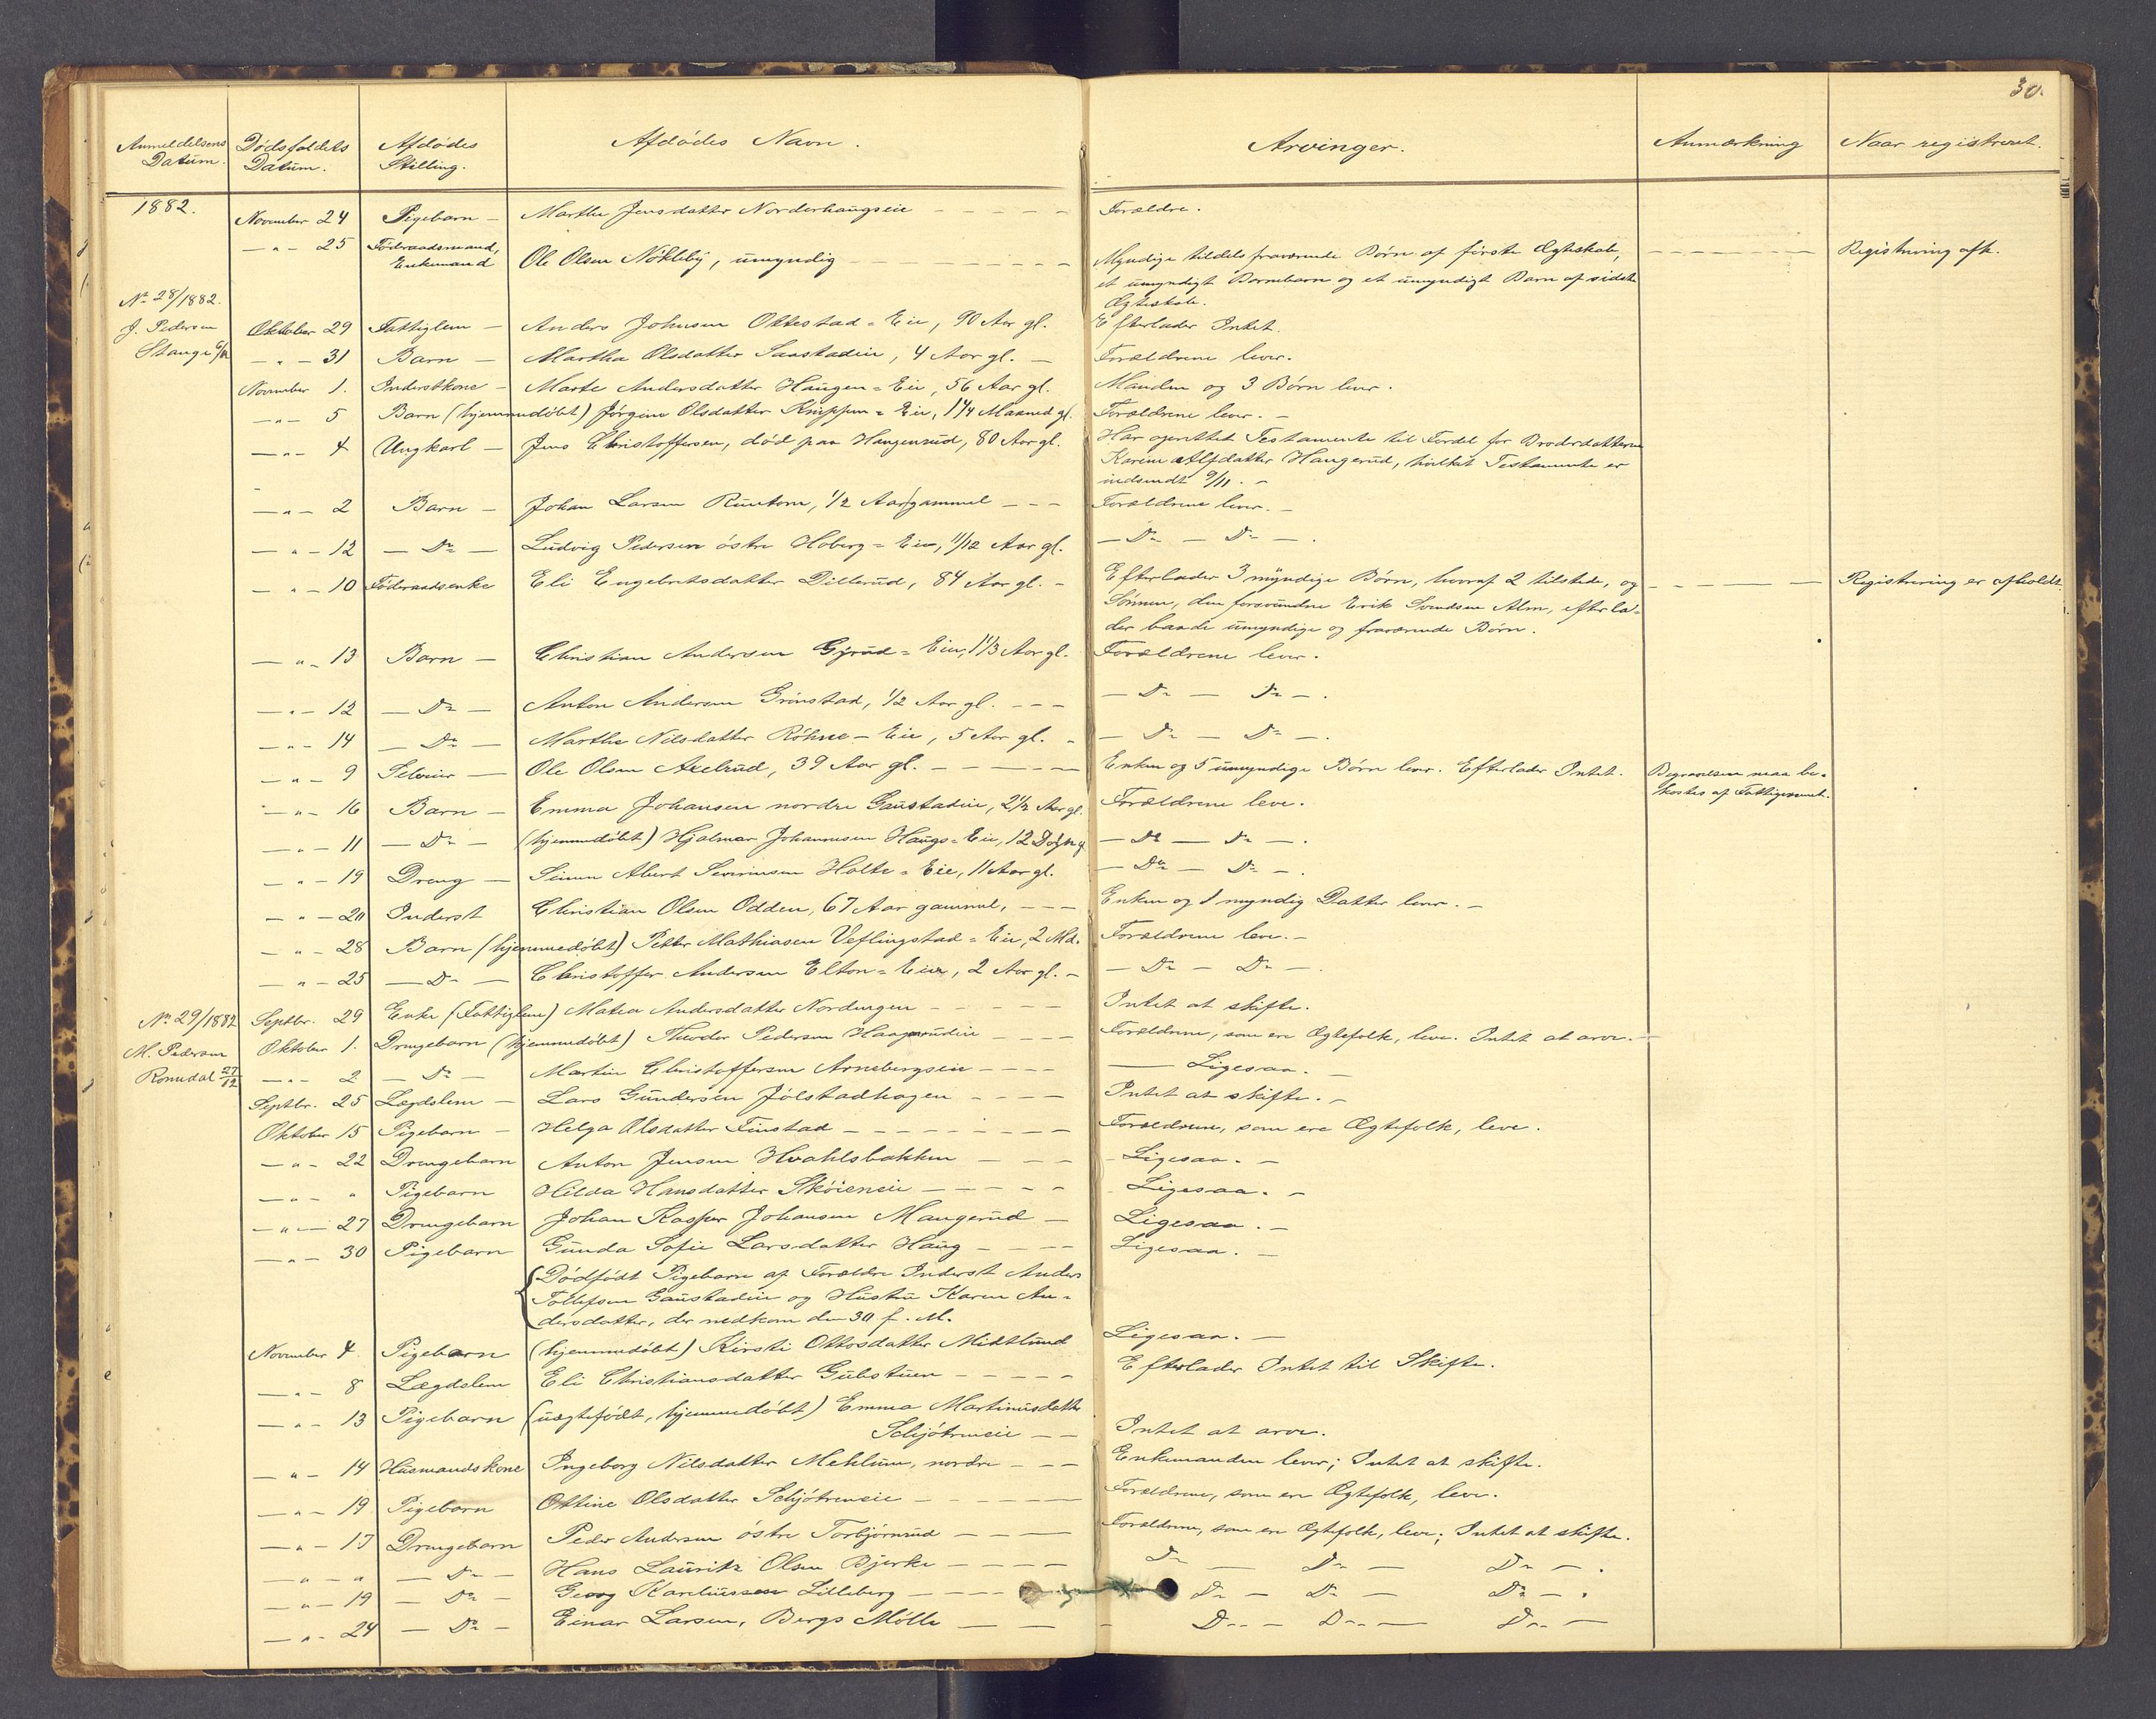 30.
Anmeldelsens Datum. Dødsfaldets Datum. Afdødes Stilling. Afdødes Navn. Arvinger. Anmærkning Naar registreret.
1882.
November 24 Pigebarn – Marthe Jensdatter Norderhaugseie – – – – Forældre.
– " – 25 Føderaadsmand, Enkemand Ole Olsen Nökleby, umyndig – – – Myndige tildels fraværende Børn af første Ægteskab, – – – Registrering afh.
et umyndigt Barnebarn og et umyndigt Barn af sidste
Ægteskab.
No 28/1882.
J. Pedersen Oktober 29 Fattiglem – Anders Johnsen Ottestad = Eie, 90 Aar gl. Efterlader Intet.
Stange – " – 31 Barn – Martha Olsdatter Saastadeie, 4 Aar gl. – Forældrene lever.
November 1. Inderstkone – Marte Andersdatter Haugen = Eie, 56 Aar gl. Manden og 3 Börn lever.
– " – 5 Barn (hjemmedøbt) Jörgine Olsdatter = Eie, 1 1/4 Maaned gl. Forældrene lever. –
– " – 4 Ungkarl – Jens Christoffersen, död paa Haugerud, 80 Aar gl. Har oprettet Testamente til Fordel for Broderdatteren
Karine Alfdatter Haugerud, hvilket Testamente er
indsendt 9/11. –
– " – 2 Barn – Johan Larsen, 1/2 Aar gammel – – – Forældrene lever. –
– " – 12 – Do – Ludvig Pedersen östre Hoberg = Eie, 11/12 Aar gl. – Do – Do –.
– " – 10 Föderaadsenke Eli Engebretsdatter Dillerud, 84 Aar gl. – Efterlader 3 myndige Børn, hvoraf 2 tilstede, og – – – Registrering er afholdt.
Sønnen, den forsvundne Erik Svendsen Alm, efterla-
der baade umyndige og fraværende Børn.
– " – 13 Barn – Christian Andersen Gjrud = Eie, 1 1/3 Aar gl. Forældrene lever.
– " – 12 – Do – Anton Andersen Grönstad, 1/2 Aar gl. – – – – Do – Do –.
– " – 14 – Do – Marthe Nilsdatter Röhne – Eie, 5 Aar gl. – – Do – Do –.
– " – 9 Seleier – Ole Olsen Axelrud, 39 Aar gl. – – – Enken og 5 umyndige Børn lever. Efterlader Intet. Begravelsen maa be-
kostes af Fattigvæsenet.
– " – 16 Barn – Emma Johansen nordre Gaustadeie, 2 1/2 Aar gl. Forældrene leve.
– " – 11 – Do – (hjemmedøbt) Hjalmar Johannesen Haugs = Eie, 12 Døgn g. – Do – Do –.
– " – 19 Dreng – Simen Albert Severinsen Holte = Eie, 11 Aar gl. – Do – Do –.
– " – 20 Inderst Christian Olsen Odden, 67 Aar gammel, – – – Enken og 1 myndig Datter lever. –
– " – 28 Barn (hjemmedøbt) Petter Mathiasen Veflingstad = Eie, 2 Md. Forældrene leve. –
– " – 25 – Do – Christoffer Andersen Elton = Eie, 2 Aar gl. – – Do – Do –.
No 29/1882 Septbr. 29 Enke (Fattiglem) Matea Andersdatter Nordengen – – – Intet at skifte.
M. Pedersen Oktober 1. Drengebarn (hjemmedøbt) Theodor Pedersen Haugerudeie – – – Forældrene, som ere Ægtefolk, leve. Intet at arve. –
Romedal 27/12 – " – 2 – Do – Martin Christoffersen Arnebergseie – – – – Ligesaa. –
Septbr. 25 Lægdslem – Lars Gundersen Jölstadhagen – – – – Intet at skifte. –
Oktober 15 Pigebarn – Helga Olsdatter Finstad – – – – – Forældrene, som ere Ægtefolk, leve.
– " – 22 Drengebarn Anton Jensen Hvahlsbakken – – – – Ligesaa. –
– " – " Pigebarn Hilda Hansdatter Sköieneie – – – – – Ligesaa. –
– " – 27 Drengebarn Johan Kasper Johansen Maugerud – Ligesaa. –
– " – 30 Pigebarn Gunda Sofie Larsdatter Haug – – – – Ligesaa. –
Dödfödt Pigebarn af Forældre Inderst Anders
Tollefsen Gaustadeie og Hustru Karen An-
dersdatter, der nedkom den 30 f. M.
November 4. Pigebarn (hjemmedøbt) Kirsti Ottosdatter Midtlund Ligesaa. –
– " – 8 Lægdslem Eli Christiansdatter Gubstuen – – – – – Efterlader Intet til Skifte.
– " – 13 Pigebarn (uægtefödt, hjemmedöbt) Emma Martinusdatter
Schjötreneie – – Intet at arve.
– " – 14 Husmandskone Ingeborg Nilsdatter Mehlum, nordre – – – Enkemanden lever; Intet at skifte.
– " – 19 Pigebarn Ottine Olsdatter Schjötreneie – – – – – Forældrene, som ere Ægtefolk, leve.
– " – 17 Drengebarn Peder Andersen östre Torbjörnrud – – – Forældrene, som ere Ægtefolk, leve; Intet at skifte.
– " – " – Do – Hans Lauritz Olsen Bjerke – – – – Do – Do – Do –.
– " – 19 – Do – Georg Kareliussen Lilleberg – – – Do – Do – Do –.
– " – 24 – Do – Einar Larsen, Bergs Mölle – – – Do – Do – Do –